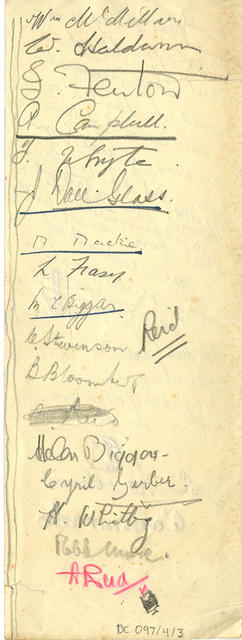 Wm McMillan
W. Haldwin
S. Fenton
A. Campbell.
J. Whyte.
J Dall Glass.
M Mackie
L Frasy
M C Biggar.
C. Stevenson
Reid
B Bloom
Reid
Helen Biggar
Cyril Gerber.
H. Whitby
Robb
A Reid
DC 097/4/3